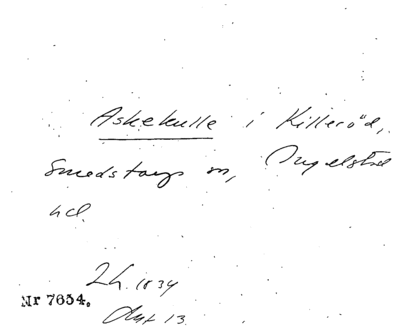 Askekulle i Killeröd,
Smedstorps sn, Ingelstad
hd.
Lh. 1834
Nr 7634.
13